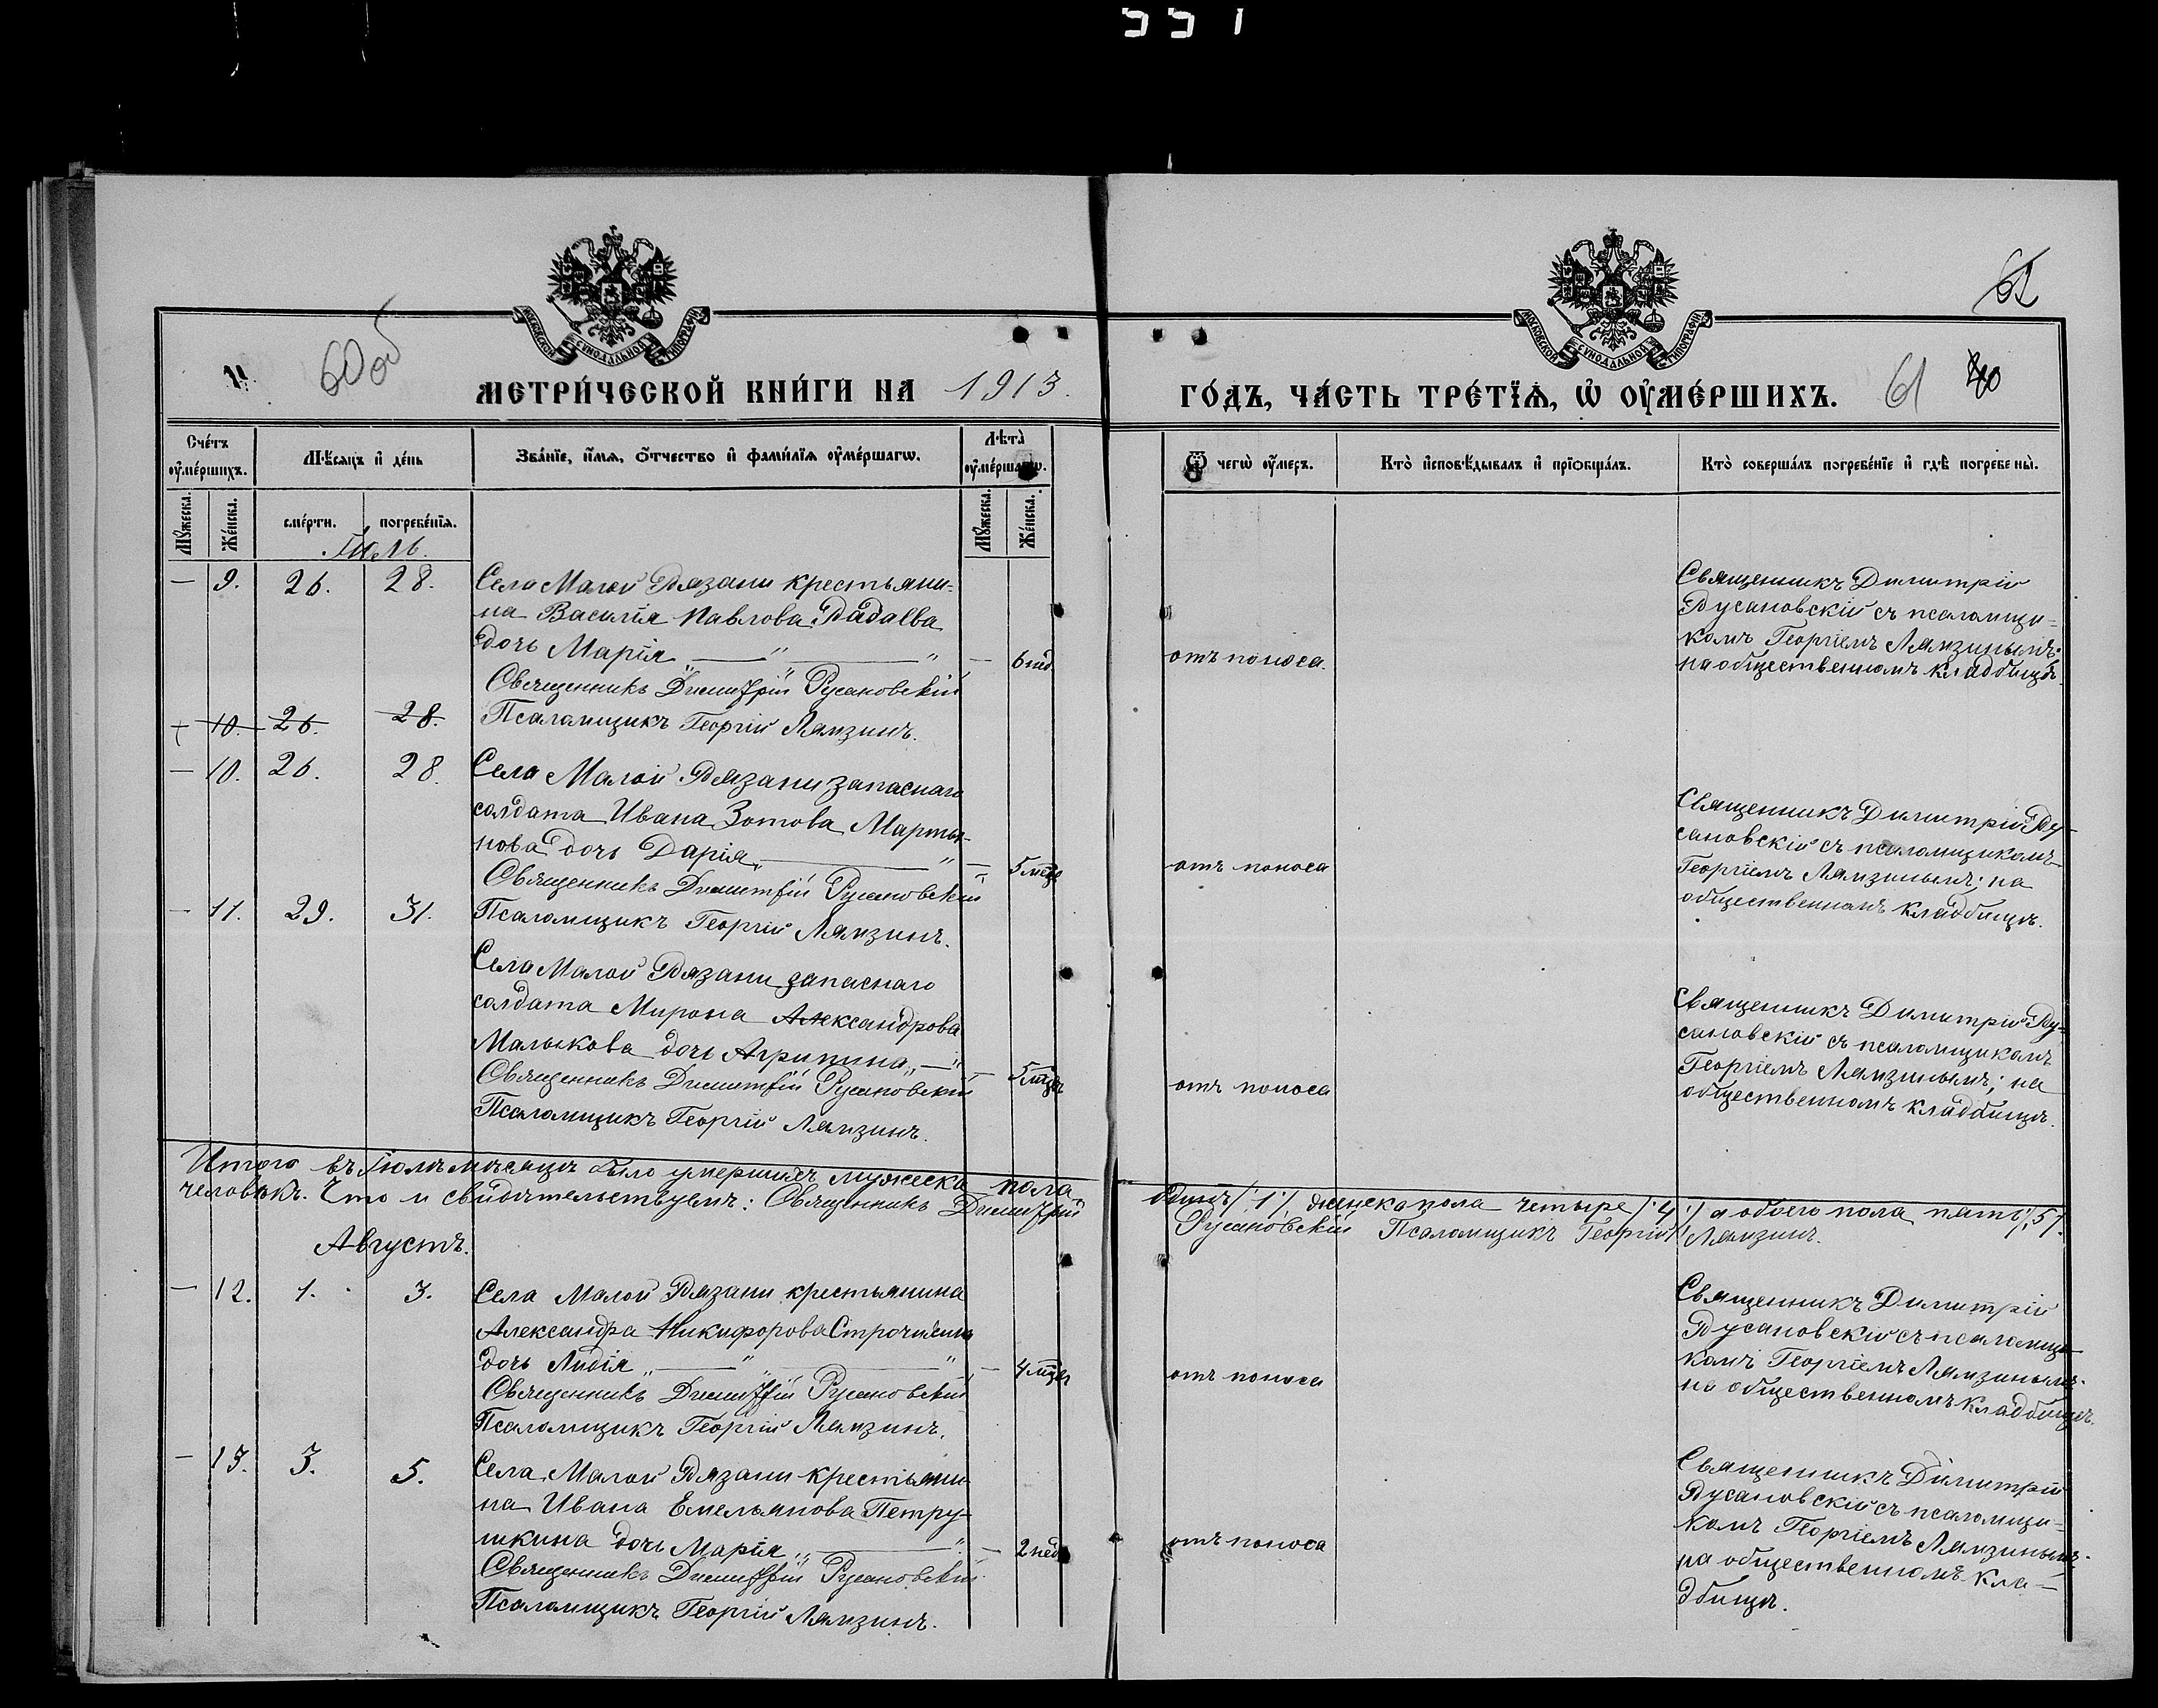 551
62
60 об
МОСКОВСКОЙ СУНОДАЛЬНОЙ ТИПОГРАФІИ
МОСКОВСКОЙ СУНОДАЛЬНОЙ ТИПОГРАФІИ
МЕТРИ́ЧЕСКОЙ КНИ́ГИ НА 1913. ГО́ДЪ, ЧА́СТЬ ТРЕ́ТЇѦ, Ѡ҆ ОУ҆МЕ́РШИХЪ. 61
Сче́тъ оу҆ме́ршихъ.
Мѣ́сѧцъ и҆ де́нь
Зва́нїе, и҆́мѧ, ѻ҆́тчество и҆ фами́лїѧ оу҆ме́ршагѡ.
Лѣ̀та оу҆ме́ршагѡ.
Ѿ чегѡ̀ оу҆́меръ.
Кто̀ и҆сповѣ́дывалъ и҆ прїѻбща́лъ.
Кто̀ соверша́лъ погребе́нїе и҆ гдѣ̀ погребены̀.
Мꙋ́жеска.
Же́нска.
сме́рти.
погребе́нїѧ.
Мꙋ́жеска.
Же́нска.
Іюль.
— 9. 26. 28. Села Малой Рязани крестьяни-
на Василія Павлова
дочь Марія — " — " — 6 нед отъ поноса.
Священникъ Димитрій Русановскій
Псаломщикъ Георгій Лямзинъ.
Священникъ Димитрій
Русановскій съ псаломщи-
комъ Георгіемъ Лямзинымъ;
на общественномъ кладбищѣ.
10. 26. 28.
— 10. 26. 28 Села Малой Рязани запаснаго
солдата Ивана Зотова Марты-
нова дочь Дарія " — " — 5 мѣц отъ поноса
Священникъ Димитрій Русановскій
Псаломщикъ Георгій Лямзинъ.
Священникъ Димитрій Ру-
сановскій съ псаломщикомъ
Георгіемъ Лямзинымъ; на
общественномъ кладбищѣ.
— 11. 29. 31.
Села Малой Рязани запаснаго
солдата Мирона Александрова
Малыкова дочь Агрипина " — " — 5 мѣц отъ поноса
Священникъ Димитрій Русановскій
Псаломщикъ Георгій Лямзинъ.
Священникъ Димитрій Ру-
сановскій съ псаломщикомъ
Георгіемъ Лямзинымъ; на
общественномъ кладбищѣ.
Итого въ Іюлѣ мѣсяцѣ было умершихъ мужеска пола одинъ /:1:/, женска пола четыре /:4:/ а обоего пола пять /:5:/
человѣкъ. Что и свидѣтельствуемъ: Священникъ Димитрій Русановскій Псаломщикъ Георгій Лямзинъ.
Августъ.
— 12. 1. 3. Села Малой Рязани крестьянина
Александра Никифорова
дочь Лидія " — " — " — 4 мѣц отъ поноса
Священникъ Димитрій Русановскій
Псаломщикъ Георгій Лямзинъ.
Священникъ Димитрій
Русановскій съ псаломщи-
комъ Георгіемъ Лямзинымъ.
на общественномъ кладбищѣ.
— 13. 3. 5. Села Малой Рязани крестьяни-
на Ивана Емельянова Петру-
шкина дочь Марія " — " — 2 нед отъ поноса
Священникъ Димитрій Русановскій
Псаломщикъ Георгій Лямзинъ.
Священникъ Димитрій
Русановскій съ псаломщи-
комъ Георгіемъ Лямзинымъ.
на общественномъ кла-
дбищѣ.